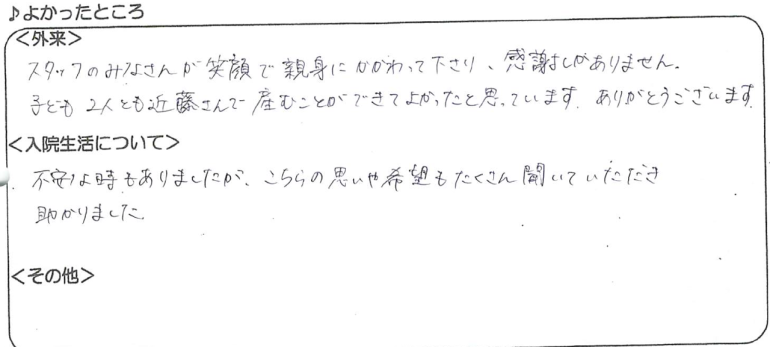 ♪よかったところ
<外来>
スタッフのみなさんが笑顔で親身にかかわって下さり、感謝しかありません。
子ども2人とも近藤さんで産むことができてよかったと思っています。ありがとうございます。
<入院生活について>
不安な時もありましたが、こちらの思いや希望もたくさん聞いていただき
助かりました。
<その他>